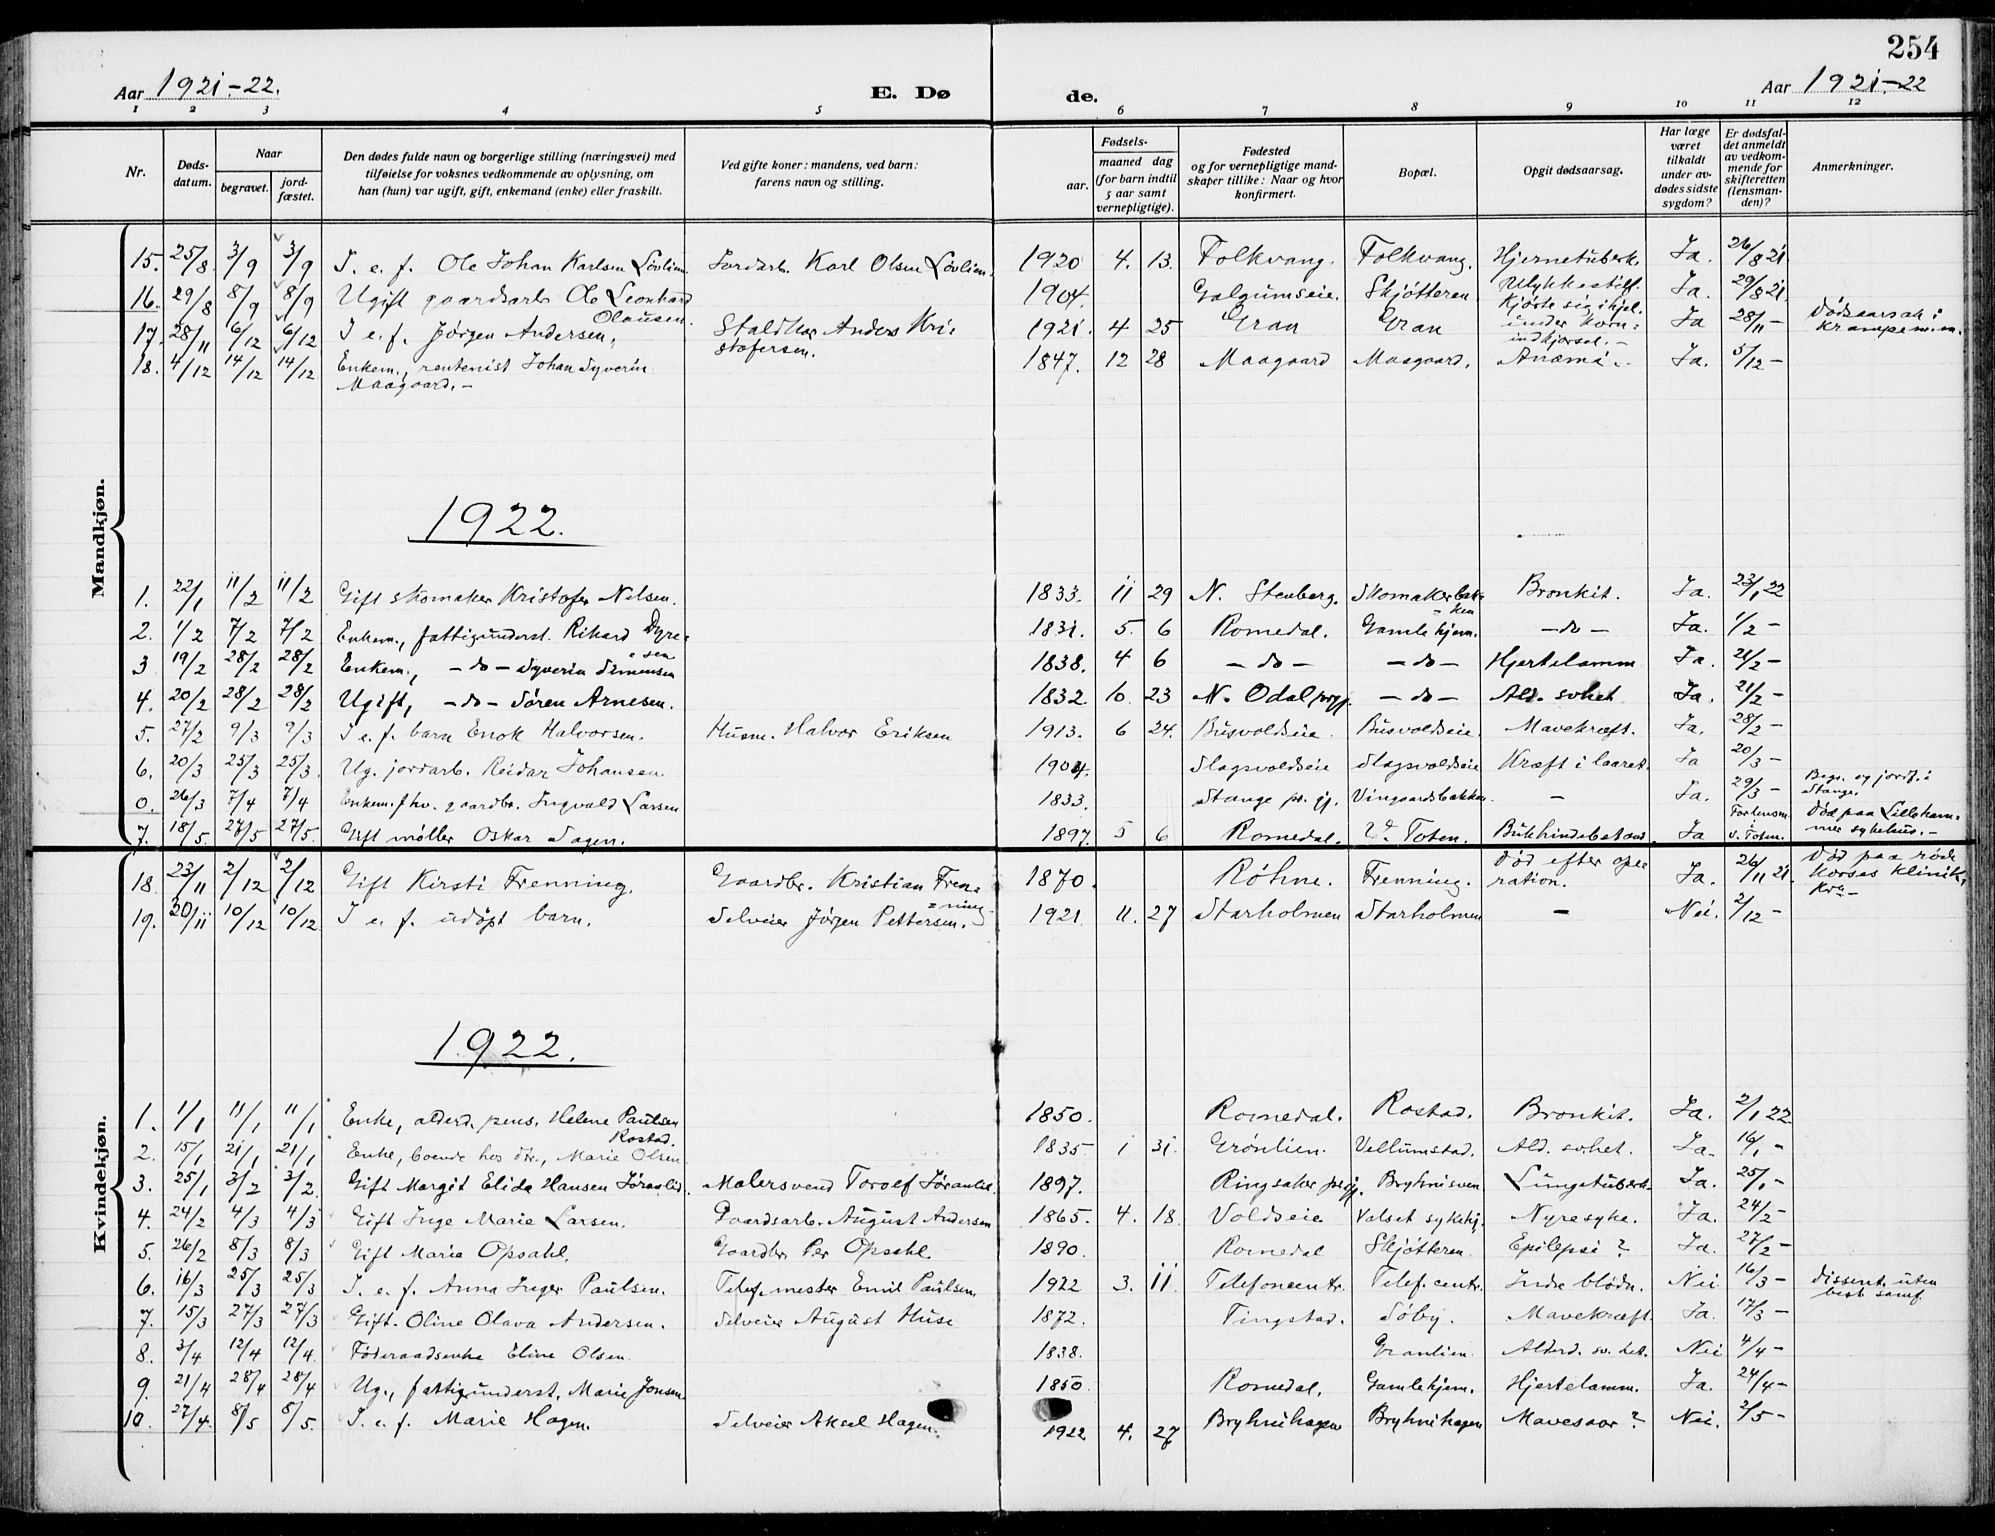 254
Aar 1921-22.
E. Dø
de.
Aar 1921-22
1 2 3 4 5 6 7 8 9 10 11 12
Nr.
Døds-
datum.
Naar
begravet.
jord-
fæstet.
Den dødes fulde navn og borgerlige stilling (næringsvei) med
tilføielse for voksnes vedkommende av oplysning, om
han (hun) var ugift, gift, enkemand (enke) eller fraskilt.
Ved gifte koner: mandens, ved barn:
farens navn og stilling.
Fødsels-
aar.
maaned dag
(for barn indtil
5 aar samt
vernepligtige).
Fødested
og for vernepligtige mand-
skaper tillike: Naar og hvor
konfirmert.
Bopæl.
Opgit dødsaarsag.
Har læge
været
tilkaldt
under av-
dødes sidste
sygdom?
Er dødsfal-
det anmeldt
av vedkom-
mende for
skifteretten
(lensman-
den)?
Anmerkninger.
Mandkjøn.
15. 25/8 3/9 3/9 I. e. f. Ole Johan Karlsen Lövlien. Jordarb. Karl Olsen Lövlien. 1920 4. 13. Folkvang. Folkvang. Hjernetuberk. Ja. 26/8 21.
16. 29/8 8/9 8/9 Ugift gaardsarb. Ole Leonhard Olausen. 1904. Galgumseie. Skjötteren. Ulykkestilf. Kjörte sig ihjel under korn-indkjörsel.- Ja. 29/8 21.
17. 28/11 6/12 6/12 I e. f. Jörgen Andersen, Staldkar Anders Kristofersen. 1921. 4 25 Gran Gran Ja 28/11 - Dødsaarsak: krampe
18. 4/12 14/12 14/12 Enkem., rentenist Johan Syverin Maagaard.- 1847. 12 28 Maagaard Maagaard. Anæmi.- Ja. 5/12 -
1922.
1. 22/1 11/2 11/2 Gift skomaker Kristofer Nilsen. 1833. 11 29 N. Stenberg. Skomakerbakken Bronkit. Ja. 23/1 22
2. 1/2 7/2 7/2 Enkem., fattigunderst. Rikard Dyresen 1831. 5. 6 Romedal. Gamlehjem. -do- Ja. 1/2 -
3 19/2 28/2 28/2 Enkem., -do- Syverin Simensen 1838. 4 6 -do- -do- Hjertelamm Ja. 21/2 -
4. 20/2 28/2 28/2 Ugift, -do- Sören Arnesen. 1832. 10 23 N. Odal prgj. -do- Ald. svhet. Ja. 21/2 -
5. 27/2 9/3 9/3 I e. f. barn Enok Halvorsen. Husm. Halvor Eriksen 1913. 6 24. Busvoldseie. Busvoldseie. Mavekræft. Ja. 28/2 -
6. 20/3 25/3 25/3. Ug. jordarb. Reidar Johansen. 1904. Slagsvoldseie Slagsvoldseie Kræft i laaret. Ja 20/3 -
0. 26/3 7/4 7/4 Enkem. fhv. gaardbr. Ingvald Larsen 1833. Stange pr.gj. Vingaardsbakken. - Ja. 29/3 - Begr. og jordf. i Stange.
7. 18/5. 27/5 27/5. Gift møller Oskar Sagen. 1897. 5 6 Romedal. V. Toten. Bukhindebetænd. Ja Forlensm. i v. Toten. Död paa Lillehammer sykehus.-
Kvindekjøn.
18. 23/11 2/12 2/12 Gift Kirsti Frenning. Gaardbr. Kristian Frenning 1870. Röhne. Frenning. död efter operation. Ja. 26/11 21. Död paa röde Korses klinik, Kra-
19. 20/11 10/12 10/12 I e. f. udöpt barn. Selveier Jörgen Pettersen. 1921 11. 27 Starholmen Starholmen - Nei. 2/12 -
1922.
1. 1/1 11/1 11/1 Enke, alderd. pens. Helene Paulsen Rostad. 1850. Romedal. Rostad. Bronkit. Ja. 2/1 22
2. 15/1 21/1 21/1 Enke, boende hos dtr., Marie Olsen 1835 1 31. Grönlien. Vellumstad. Ald. svhet. Ja. 16/1 -
3. 25/1 3/2 3/2. Gift Margit Elida Hansen Malersvend Torolf 1897. Ringsaker prgj. Bryhnisven Lungetuberk. Ja. 25/1 -
4. 24/2 4/3 4/3 Gift Inge Marie Larsen. Gaardsarb. August Andersen 1865. 4. 18. Voldseie Valset sykehj. Nyresyke. Ja. 24/2 -
5. 26/2 8/3 8/3 Gift Marie Opsahl. Gaardbr Per Opsahl. 1890. Romedal Skjötteren. Epilepsi? Ja. 27/2 -
6. 16/3 25/3 25/3 I. e. f. Anna Inger Paulsen. Telef.mester Emil Paulsen 1922 3. 11 Telefoncentr. Telef.centr. Indre blödn. Nei 16/3 - Dissent. uten best. samf.
7. 15/3 27/3 27/3 Gift. Oline Olava Andersen. Selveier August Huse 1872. Tingstad. Söby. Mavekræft. Ja. 17/3 -
8. 3/4 12/4 12/4. Föderaadsenke Eline Olsen. 1838. Granlien. Alderd. sv.het. Nei 4/4 -
9. 21/4 28/4 28/4 Ug., fattigunderst. Marie Jonsen 1850. Romedal. Gamlehjem. Hjertelamm. Ja. 24/4 -
10. 27/4. 8/5 8/5. I. e. f. Marie Hagen. Selveier Aksel Hagen. 1922 4. 27 Bryhnihagen Bryhnihagen Mavesaar? Nei. 2/5 -